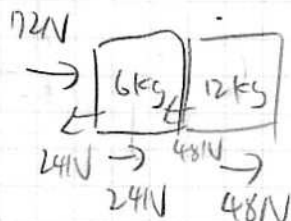 72N
6kg 12kg
24N 48N
24N 48N